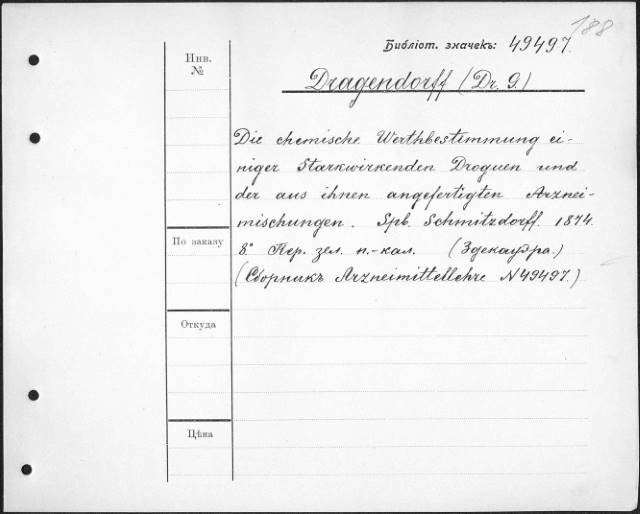 188
Библіот. значекъ: 49497.
Инв.
№
Dragendorff (Dr. G.)
Die chemische Werthbestimmung ei-
niger starkwirkenden Droguen und
der aus ihnen angefertigten Arznei-
mischungen. Spb. Schmitzdorff. 1874.
По заказу
8° Пер. зел. п.-кал. (Здекауэра.)
(Сборникъ Arzneimittellehre N 49497.)
Откуда
Цѣна